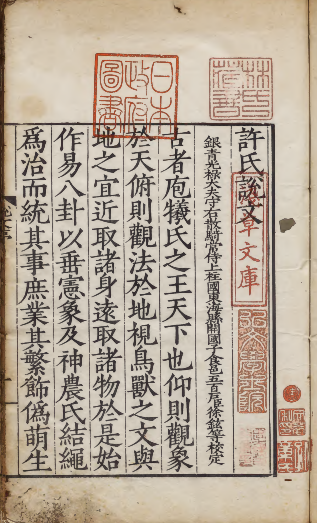 林氏藏書
日本政府圖書
許氏說文
淺草文庫
弘文學士院
銀青光祿大夫守右散騎常侍上柱國東海縣開國子食邑五百戶徐鉉等校定
古者庖犧氏之王天下也仰則觀象
於天俯則觀法於地視鳥獸之文與
地之宜近取諸身遠取諸物於是始
作易八卦以垂憲象及神農氏結繩
爲治而統其事庶業其繁飾僞萌生